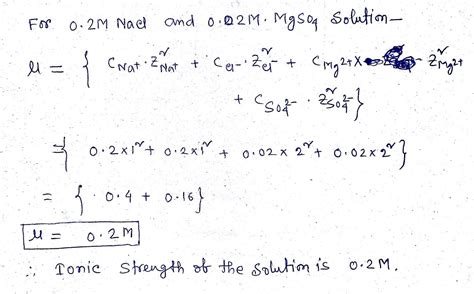 For 0.2M Nacl and 0.02M. MgSO4 Solution—
μ = { CNa+ · Z²Na+ + Ccl- · Z²cl- + CMg2+ × Z²Mg2+
+ CSO4²- · Z²SO4²- }
= { 0.2×1² + 0.2×1² + 0.02 × 2² + 0.02×2² }
= { 0.4 + 0.16 }
μ = 0.2 M
∴ Ionic Strength of the Solution is 0.2M.